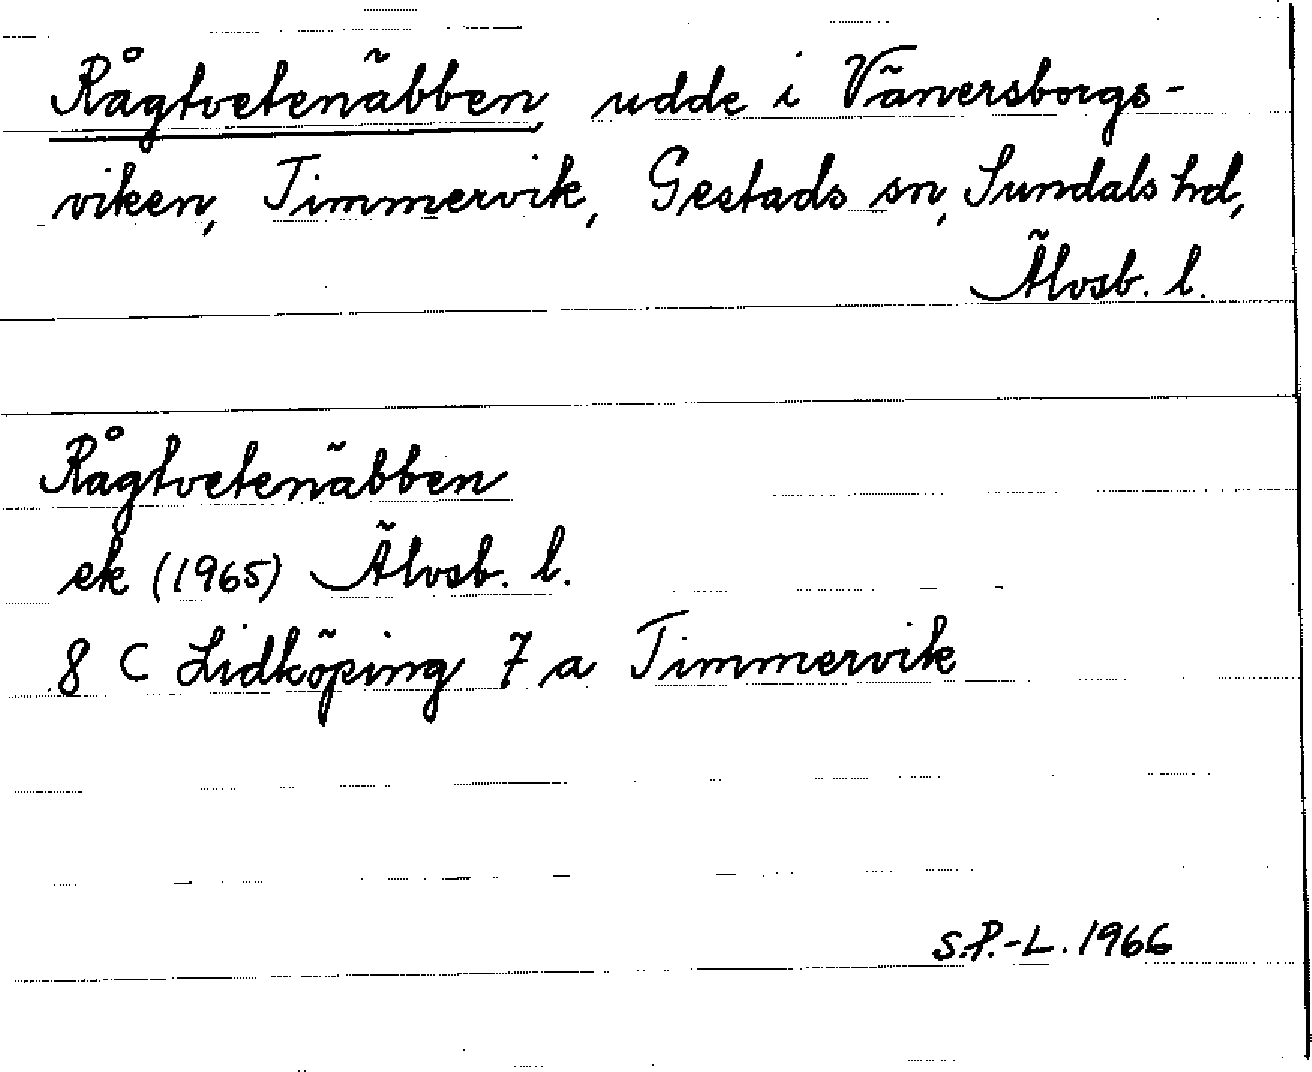 Rågtvetenäbben, udde i Vänersborgs-
viken, Timmervik, Gestads sn, Sundals hd,
Älvsb. l.
Rågtvetenäbben
ek (1965) Älvsb. l.
8 C Lidköping 7 a Timmervik
S.P.-L. 1966